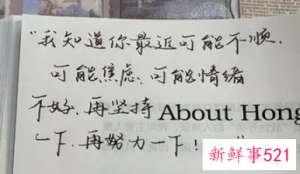 "我知道你最近可能不顺，
可能焦虑，可能情绪
不好，再坚持 About Hong
一下，再努力一下！"
新鲜事521